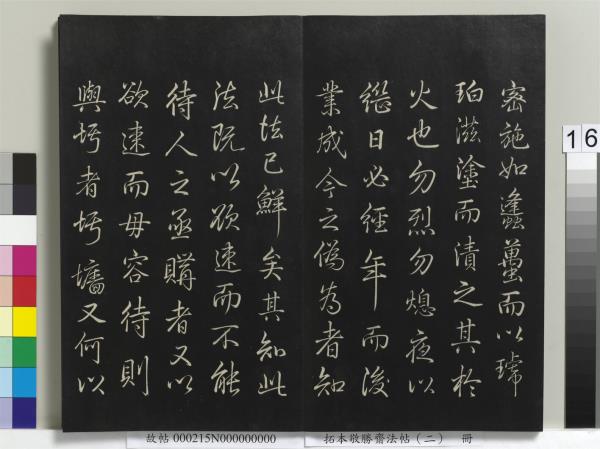 密施如蠭蠆而以琥
珀滋塗而漬之其於
火也勿烈勿熄夜以
繼日必經年而後
業成今之偽為者知
此法已鮮矣其知此
法既以欲速而不能
待人之亟購者又以
欲速而毋容待則
與圬者圬牆又何以
16
故帖 000215N000000000
拓本敬勝齋法帖（二） 冊